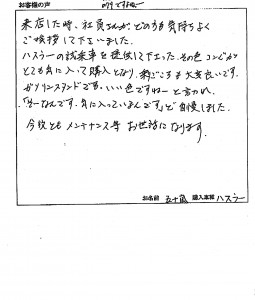 お客様の声
来店した時、社員さんが、どの方も気持ちよく
ご挨拶して下さいました。
ハスラーの試乗車を提供して下さった。その色コンビが
とても気に入って購入となり、乗りごこちも大変良いです。
ガソリンスタンドでも、いい色ですねーと言われ、
「そーなんです、気に入っているんです」と自慢しました。
今後ともメンテナンス等お世話になります。
お名前 五十嵐 購入車種 ハスラー